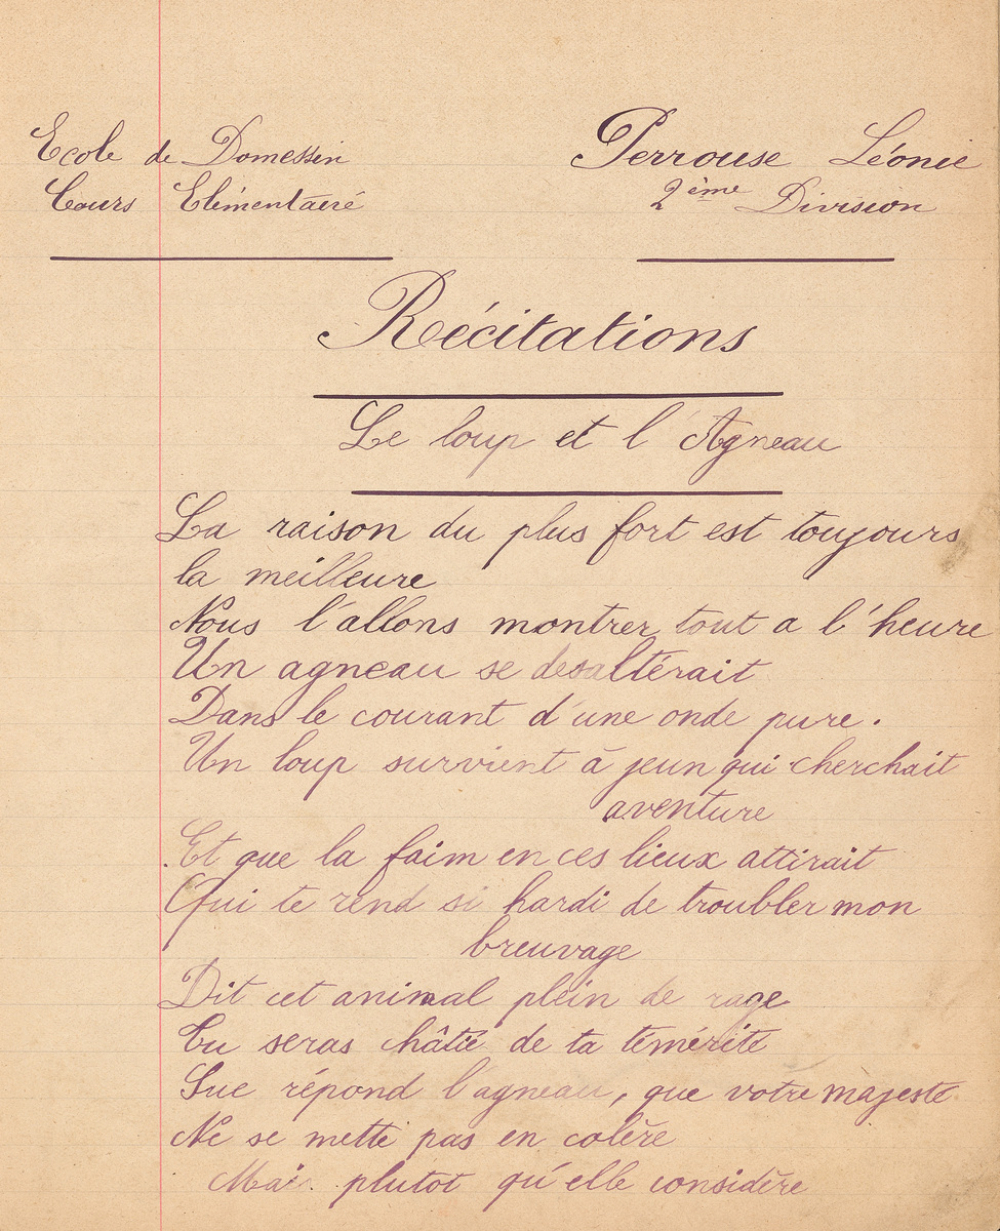 Ecole de Domessin
Perrouse Léonie
Cours Elémentaire
2ème Division
Récitations
Le loup et l'Agneau
La raison du plus fort est toujours
la meilleure
Nous l'allons montrer tout a l'heure
Un agneau se desaltérait
Dans le courant d'une onde pure.
Un loup survient à jeun qui cherchait
aventure
Et que la faim en ces lieux attirait
Qui te rend si hardi de troubler mon
breuvage
Dit cet animal plein de rage
Tu seras châtié de ta témérité
Sue répond l'agneau, que votre majesté
Ne se mette pas en colère
Mais plutot qu'elle considère